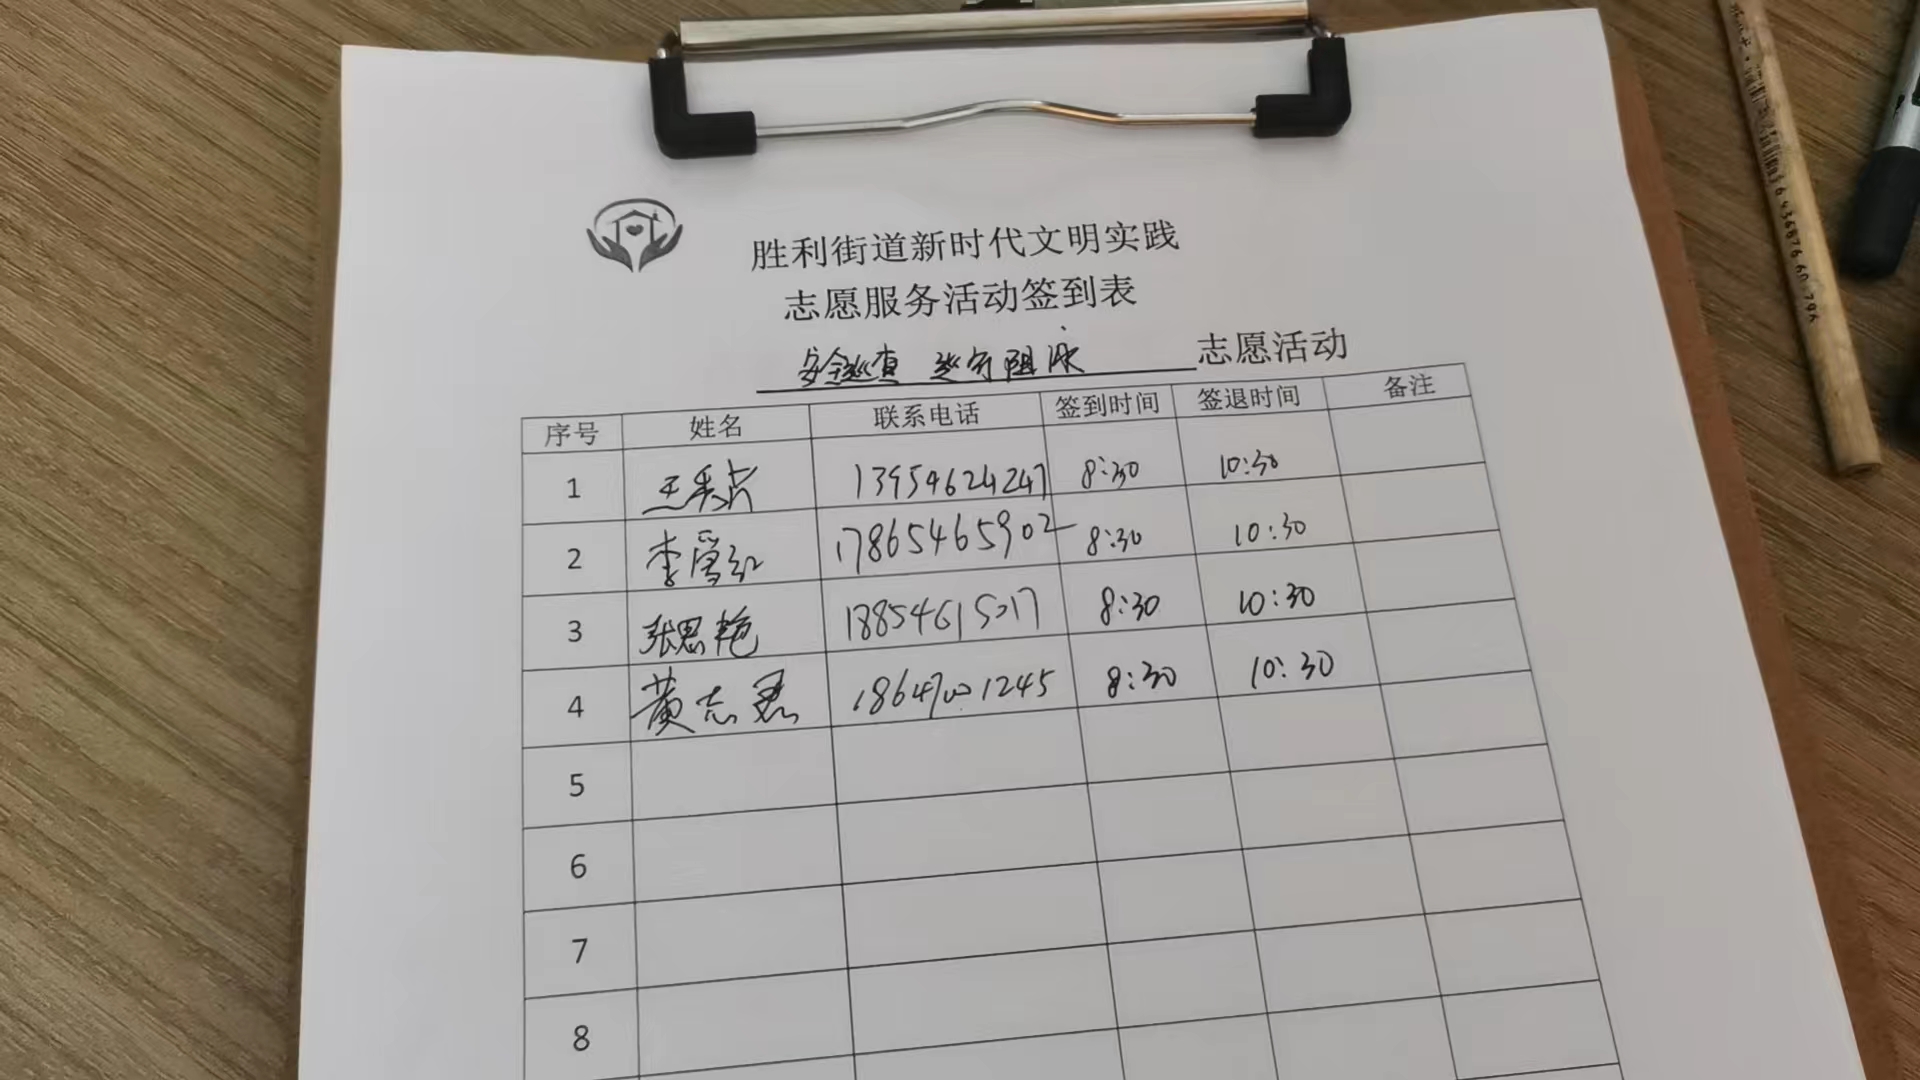 胜利街道新时代文明实践
志愿服务活动签到表
安全巡查 志愿活动
序号 姓名 联系电话 签到时间 签退时间 备注
1 王秀 13954624247 8:30 10:30
2 李 红 17865465902 8:30 10:30
3 张思艳 18854615017 8:30 10:30
4 黄志 18647001245 8:30 10:30
5
6
7
8